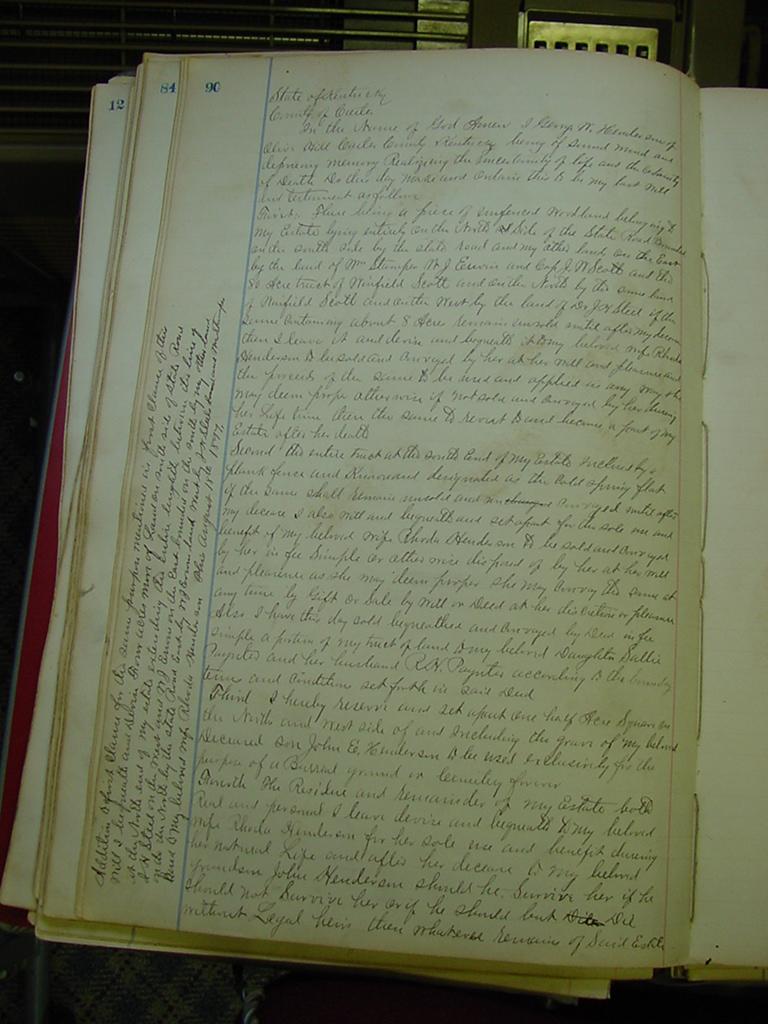 12
84
90
State of Kentucky
County of Carter
In the Name of God Amen I Henderson of
Olive Hill Carter County Kentucky being of sound mind and
memory Realizing the uncertainty of life and the
of Death Do this day make and this to be my last Will
and testament as follows
First. There being a piece of unfenced Woodland belonging to
My Estate lying entirely on the North Side of the State Road Bounded
on the south side by the state road and my other land on the East
by the land of Wm Stamper W J Erwin and Capt J W Scott and the
80 Acre tract of Winfield Scott and on the North by the same land
of Winfield Scott and on the West by the land of Dr J H Steel if the
same containing about 8 Acre remain unsold until after my decease
then I leave it and devise and bequeath it to my beloved wife Rhoda
Henderson to be sold and conveyed by her at her will and pleasure and
the proceeds of the same to be used and applied in any way she
may deem proper other wise if not sold and conveyed by her during
her life time then the same to revert to and become a part of my
Estate after her death
Second the entire tract at the south End of my Estate inclosed by a
plank fence and Known and designated as the Cold Spring flat
if the same shall remain unsold and conveyed until after
my decease I also will and bequeath and set apart for the sole use and
benefit of my beloved wife Rhoda Henderson to be sold and conveyed
by her in fee Simple or other wise disposed of by her at her will
and pleasure as she may deem proper she may convey the same at
any time by Gift or Sale by Will or Deed at her discretion or pleasure
Also I have this day sold bequeathed and conveyed by Deed in fee
simple a portion of my tract of land to my beloved Daughter Sallie
Paynter and her husband R. H. Paynter according to the boundary
term and condition set forth in said Deed
Third I hereby reserve and set apart one half Acre Square on
the North and West side of and including the grave of my beloved
deceased son John E. Henderson to be used exclusively for the
purpose of a Burreal ground or Cemetery forever
Fourth The Residue and remainder of my Estate both
Real and personal I leave devise and bequeath to my beloved
wife Rhoda Henderson for her sole use and benefit during
her natural Life and after her decease to my beloved
grandson John Henderson should he Survive her if he
should not Survive her or if he should but Die
without Legal heirs then whatever remains of Said Estate
Addition to first Clause for the same purpose mentioned in first Clause of this
Will I bequeath and devise four acres more of Land on south side of State Road
at the North end of my estate extending the entire length between the line of
J H Steel on the West and W J Erwin on the East bounded on the south by my other land
and on the North by the state Road East by W J Erwin land West by J H Steel land
to my beloved wife Rhoda Henderson this August 18th 1897.